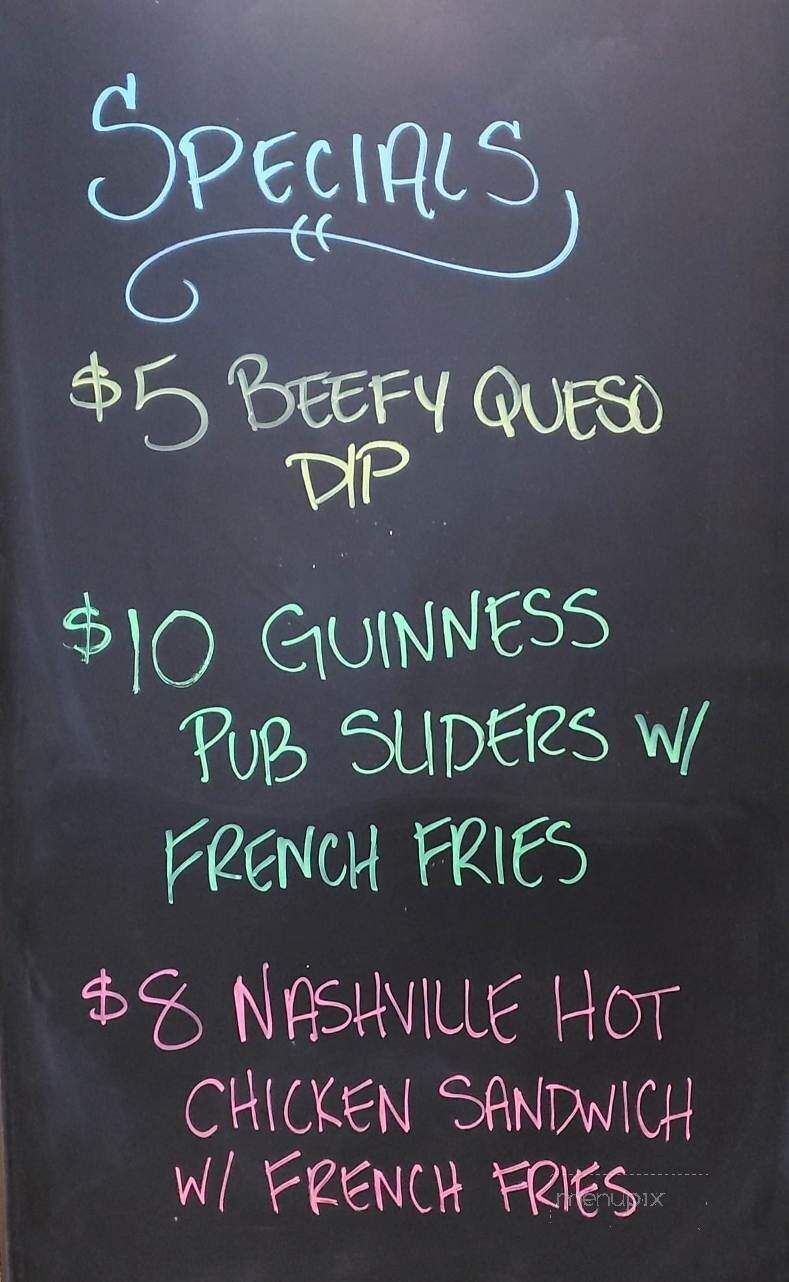 SPECIALS
$5 BEEFY QUESO
DIP
$10 GUINNESS
PUB SLIDERS W/
FRENCH FRIES
$8 NASHVILLE HOT
CHICKEN SANDWICH
W/ FRENCH FRIES
menupix